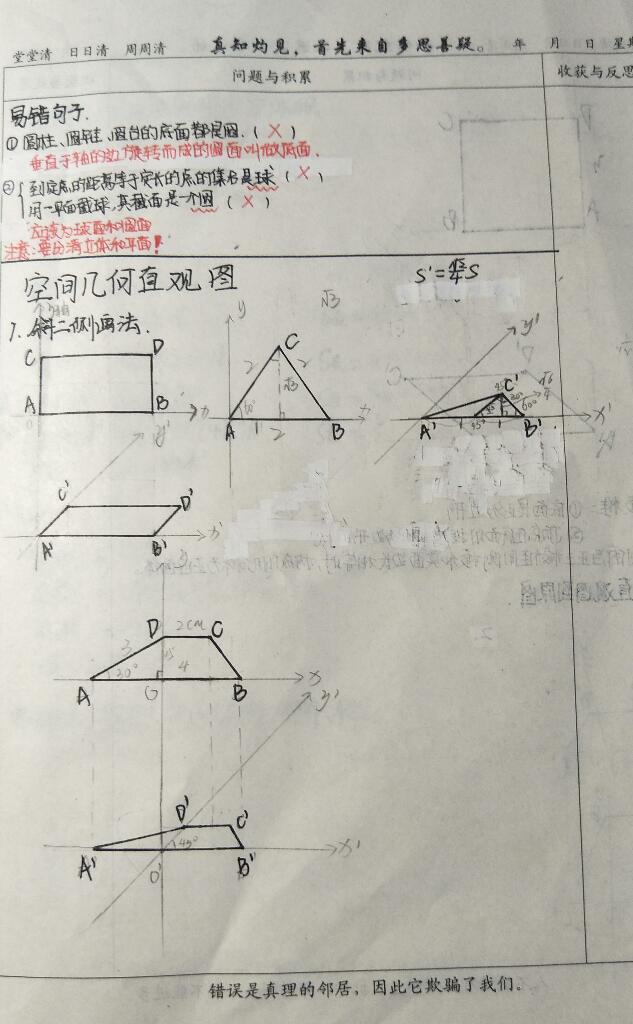 堂堂清 日日清 周周清 真知灼见，首先来自多思善疑。 年 月 日 星期
问题与积累 收获与反思
易错句子.
①圆柱、圆锥、圆台的底面都是圆.（×）
垂直于轴的边旋转而成的圆面叫做底面.
②到定点的距离等于定长的点的集合是球（×）
用一平面截球,其截面是一个圆（×）
应该为球面和圆面
注意:要分清立体和平面!
空间几何直观图 S'=√2/4 S
1.斜二侧画法.
C D
A B x
y √3
C
2 2
√3
60°
A 1 2 B x
y'
C'
30°
45° 60°
A' B' x'
y'
C' D'
A' B' x'
D 2cm C
3 1.5
30° 4
A G B x
y'
D' C'
45°
A' O' B' x'
错误是真理的邻居，因此它欺骗了我们。